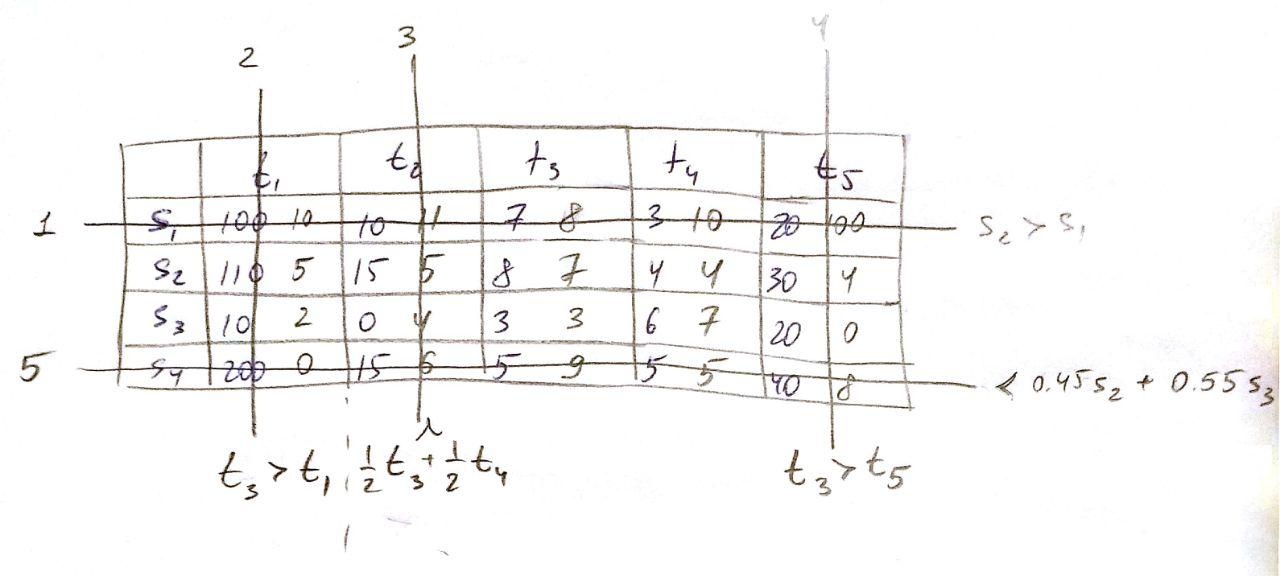 4
3
2
t₁ t₂ t₃ t₄ t₅
1 s₁ 100 10 10 11 7 8 3 10 20 100 s₂ > s₁
s₂ 110 5 15 5 8 7 4 4 30 4
s₃ 10 2 0 4 3 3 6 7 20 0
5 s₄ 200 0 15 6 5 9 5 5 40 8 < 0.45 s₂ + 0.55 s₃
t₃ > t₁ ½ t₃ + ½ t₄ t₃ > t₅